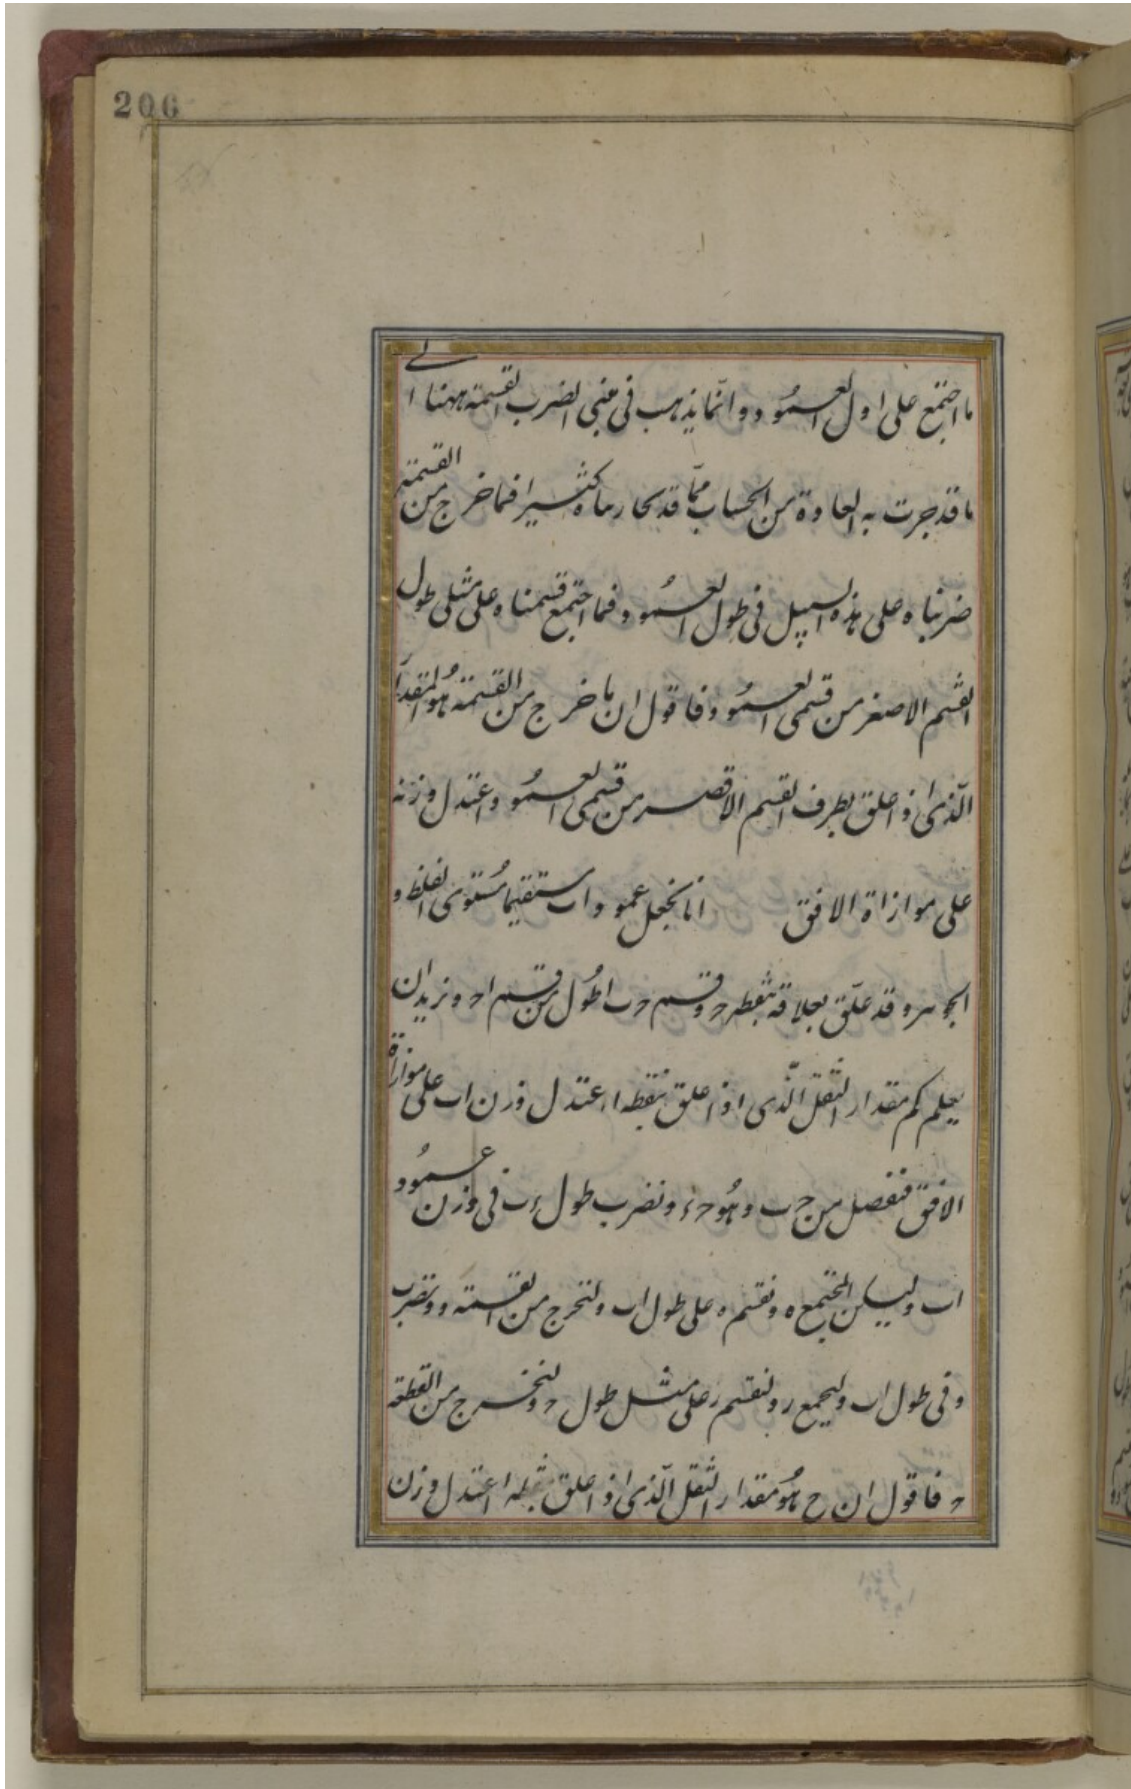 206
ما اجتمع على اول العمود وانّما يذهب فى معنى الضرب القسمة ههنا الى
ما قد جرت به العادة من الحساب ممّا قد كثيرا فما خرج من القسمة
ضربناه على هذه السبيل فى طول العمود فما اجتمع قسمناه على مثلى طول
القسم الاصغر من قسمى العمود فاقول ان ما خرج من القسمة هو المقدار
الّذى اذا علق بطرف القسم الاقصر من قسمى العمود اعتدل وزنه
على موازاة الافق انا نجعل عمود اب مستقيما مستوى الغلظ و
الجوهر وقد علّق بعلاقة بنقطه ح وقسم ح ب اطول من قسم اح ونريد ان
يعلم كم مقدار الثقل الّذى اذا علق بنقطه ا اعتدل وزن اب على موازاة
الافق فنفصل من ج ب وهو ح ء ونضرب طول ء ب فى وزن عمود
اب وليكن المجتمع ه ونقسم ه على طول اب ولنخرج من القسمة و ونضرب
و فى طول اب وليجمع ر ولنقسم ر على مثل طول ح ولنخرج من القطعة
ح فاقول ان ح هو مقدار الثقل الّذى اذا علق بنقطه ا اعتدل وزن